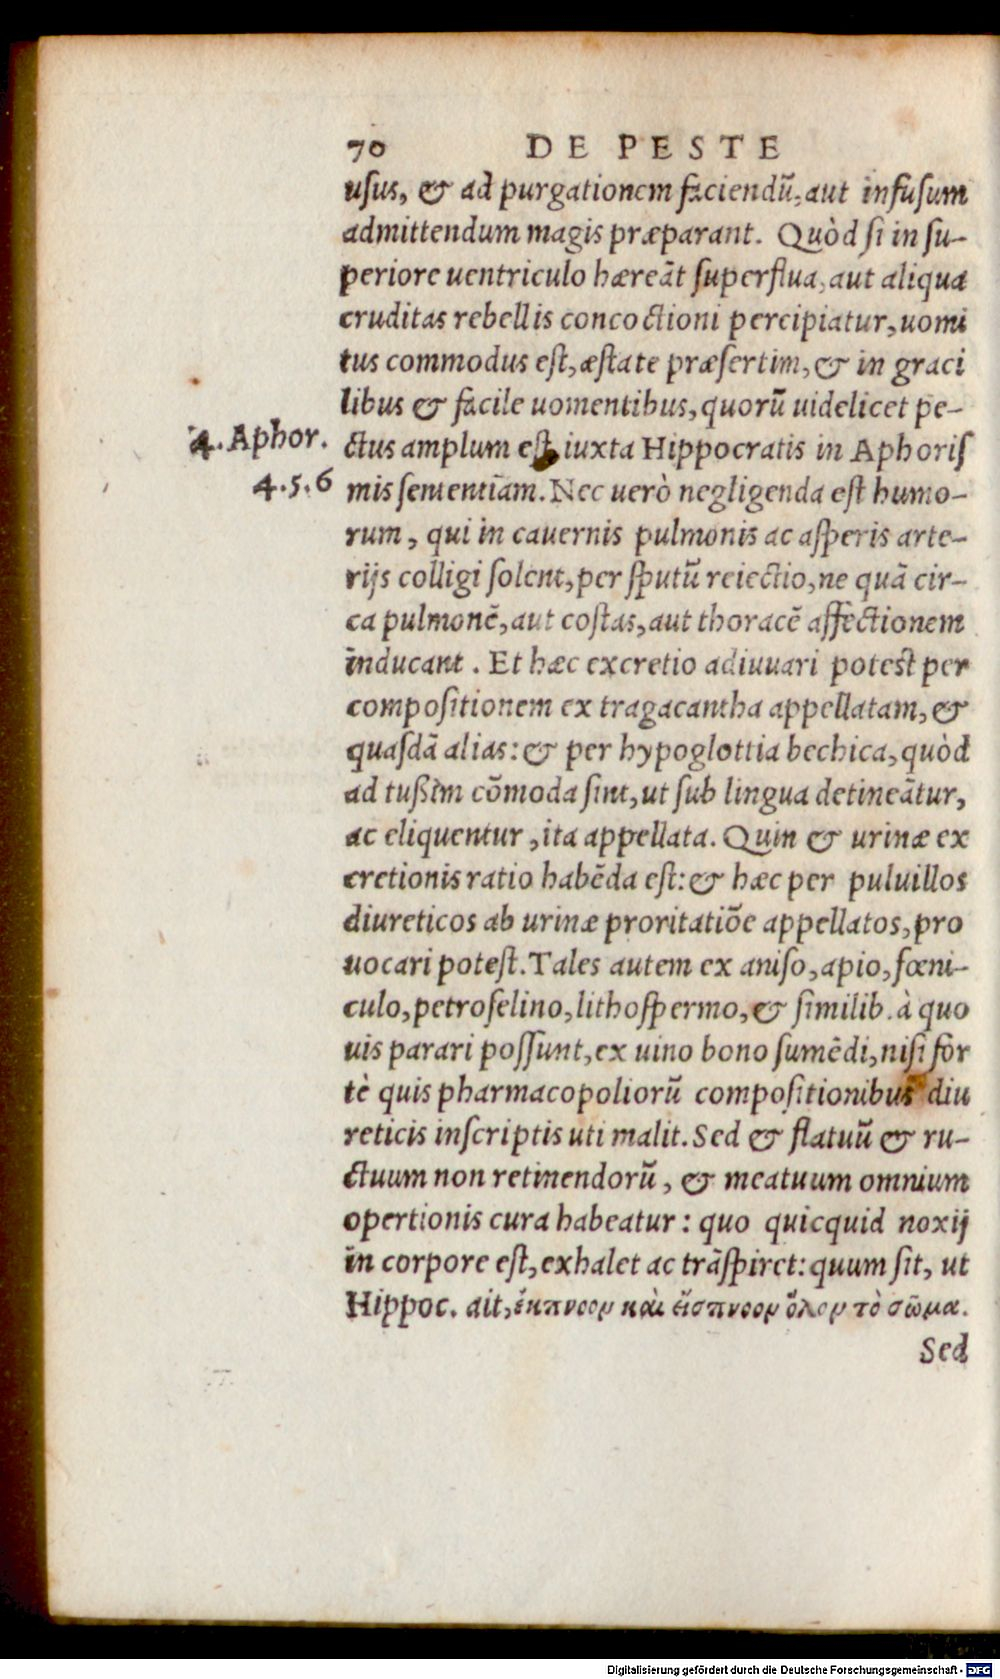 70 DE PESTE
usus, & ad purgationem faciendū, aut infusum
admittendum magis præparant. Quòd si in su-
periore uentriculo hæreāt superflua, aut aliqua
cruditas rebellis concoctioni percipiatur, uomi
tus commodus est, æstate præsertim, & in graci
libus & facile uomentibus, quorū uidelicet pe-
4. Aphor.
ctus amplum est, iuxta Hippocratis in Aphoris
4.5.6
mis sententiam. Nec uerò negligenda est humo-
rum, qui in cauernis pulmonis ac asperis arte-
rijs colligi solent, per sputū reiectio, ne quā cir-
ca pulmonē, aut costas, aut thoracē affectionem
inducant. Et hæc excretio adiuuari potest per
compositionem ex tragacantha appellatam, &
quasdā alias: & per hypoglottia bechica, quòd
ad tußim cōmoda sint, ut sub lingua detineātur,
ac eliquentur, ita appellata. Quin & urinæ ex
cretionis ratio habēda est: & hæc per puluillos
diureticos ab urinæ proritatiōe appellatos, pro
uocari potest. Tales autem ex aniso, apio, fœni-
culo, petroselino, lithospermo, & similib. à quo
uis parari possunt, ex uino bono sumēdi, nisi for
tè quis pharmacopoliorū compositionibus diu
reticis inscriptis uti malit. Sed & flatuū & ru-
ctuum non retinendorū, & meatuum omnium
opertionis cura habeatur: quo quicquid noxij
in corpore est, exhalet ac trāspiret: quum sit, ut
Hippoc. ait, ἔκπνοον καὶ εἴσπνοον ὅλον τὸ σῶμα.
Sed
Digitalisierung gefördert durch die Deutsche Forschungsgemeinschaft - DFG